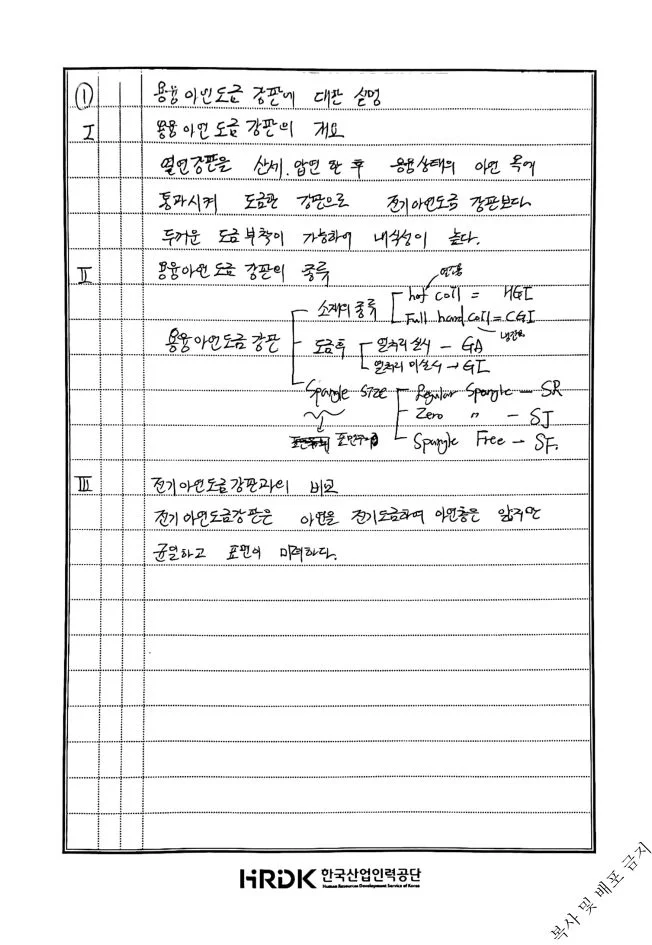 ① 용융아연도금 강판에 대한 설명
Ⅰ 용융 아연 도금 강판의 개요
열연강판을 산세, 압연 한 후 용융상태의 아연 욕에
통과시켜 도금한 강판으로 전기아연도금 강판보다
두꺼운 도금부착이 가능하여 내식성이 높다.
Ⅱ 용융아연 도금 강판의 종류
열연용
소재의 종류 hot coil = HGI
Full hard coil = CGI
냉간용
용융아연도금 강판 도금후 열처리 실시 - GA
열처리 미실시 → GI
Spangle Size Regular Spangle - SR
Zero 〃 - SJ
표면무늬 Spangle Free - SF.
Ⅲ 전기아연도금강판과의 비교
전기아연도금강판은 아연을 전기도금하여 아연층은 얇지만
균일하고 표면이 미려하다.
HRDK 한국산업인력공단
Human Resources Development Service of Korea
복사 및 배포 금지